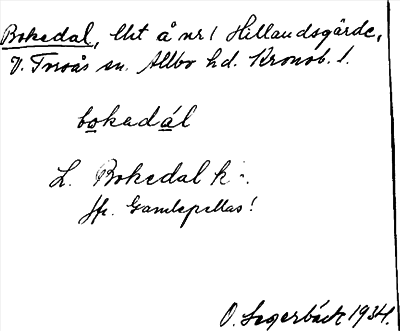 Bokedal, lht å nr 1 Hillandsgärde,
V. Torsås sn. Allbo hd. Kronob. l.
bokadál
L. Bokedal k -.
jfr. Gamlapellas!
O. Segerbäck 1934.